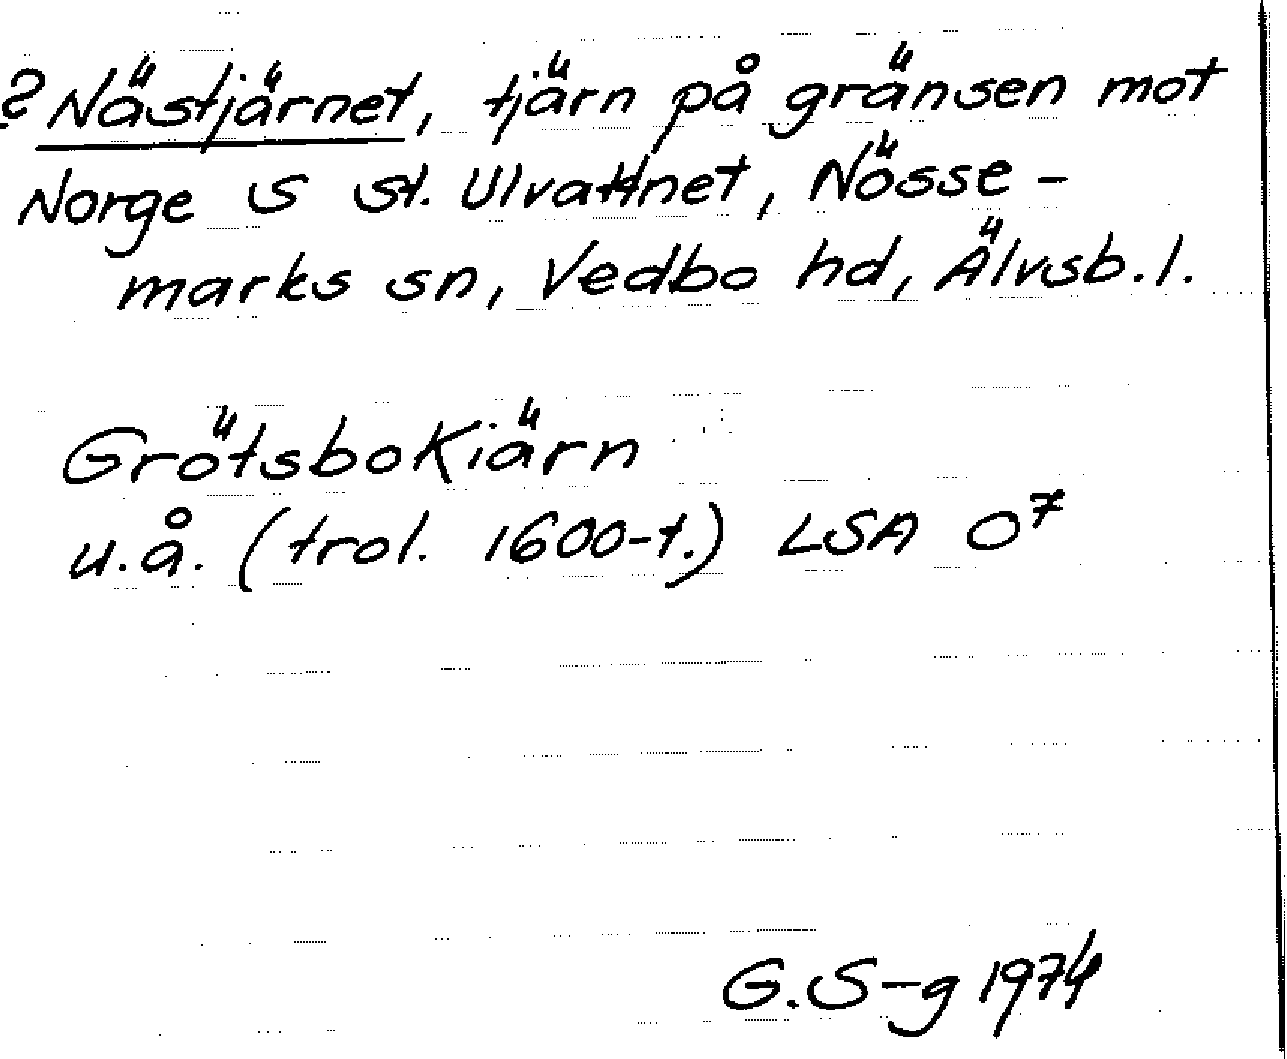 ? Nästjärnet, tjärn på gränsen mot
Norge S St. Ulvattnet, Nösse-
marks sn, Vedbo hd, Älvsb. l.
Grötsbokiärn
u.å. (trol. 1600-t.) LSA O7
G. S-g 1974